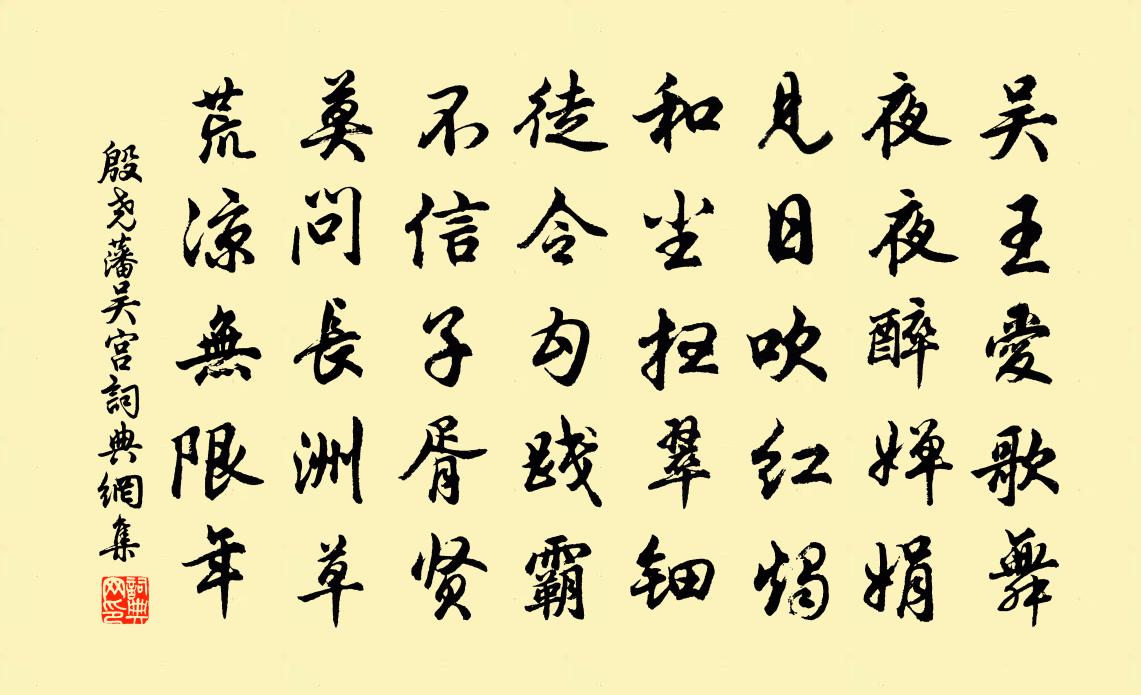 吴王愛歌舞
夜夜醉婵娟
見日吹红燭
和尘扫翠钿
徒令勾践霸
不信子胥贤
莫問長洲草
荒凉無限年
殷尧藩吴宫詞典網集
詞典网印